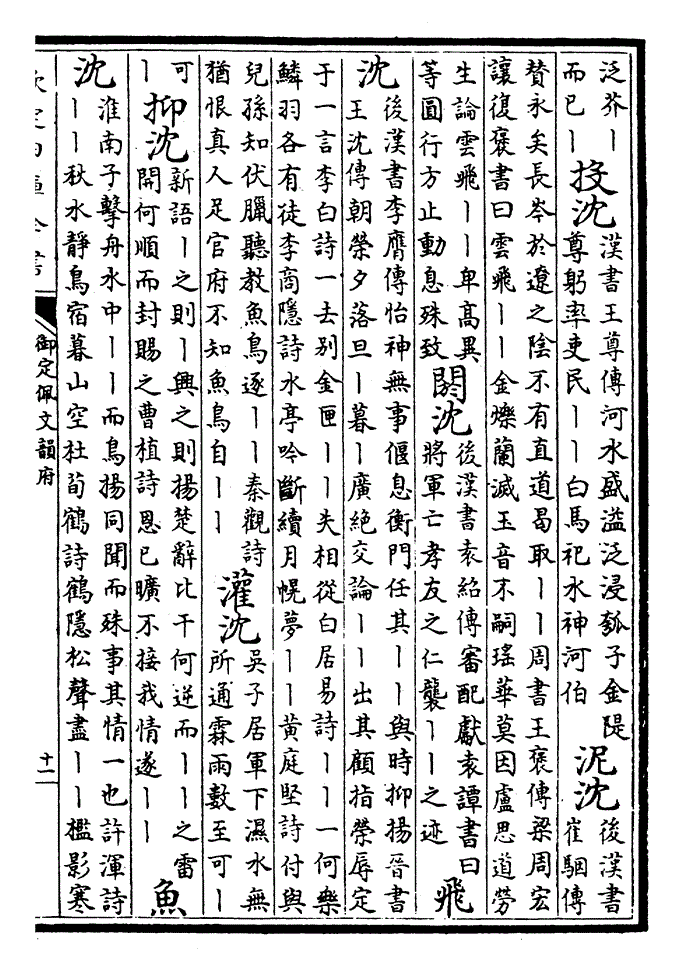 泛芥〡
而已〡
投沈
漢書王尊傳河水盛溢泛浸瓠子金隄
尊躬率吏民〡〡白馬祀水神河伯
泥沈
後漢書
崔駰傳
賛永矣長岑於遼之陰不有直道曷取〡〡周書王褒傳梁周宏
讓復褒書曰雲飛〡〡金爍蘭滅玉音不嗣瑤華莫因盧思道勞
生論雲飛〡〡卑高異
等圓行方止動息殊致
閼沈
後漢書袁紹傳審配獻袁譚書曰
將軍亡孝友之仁襲〡〡之迹
飛
沈
後漢書李膺傳怡神無事偃息衡門任其〡〡與時抑揚晉書
王沈傳朝榮夕落旦〡暮〡廣絶交論〡〡出其顧指榮辱定
于一言李白詩一去别金匣〡〡失相從白居易詩〡〡一何樂
鱗羽各有徒李商隱詩水亭吟斷續月幌夢〡〡黄庭堅詩付與
兒孫知伏臘聽教魚鳥逐〡〡秦觀詩
猶恨真人足官府不知魚鳥自〡〡
灌沈
吳子居軍下濕水無
所通霖雨數至可〡
可
〡
抑沈
新語〡之則〡興之則揚楚辭比干何逆而〡〡之雷
開何順而封賜之曹植詩恩已曠不接我情遂〡〡
魚
沈
淮南子擊舟水中〡〡而鳥揚同聞而殊事其情一也許渾詩
〡〡秋水静鳥宿暮山空杜荀鶴詩鶴隱松聲盡〡〡檻影寒
欽定四庫全書
御定佩文韻府
十二